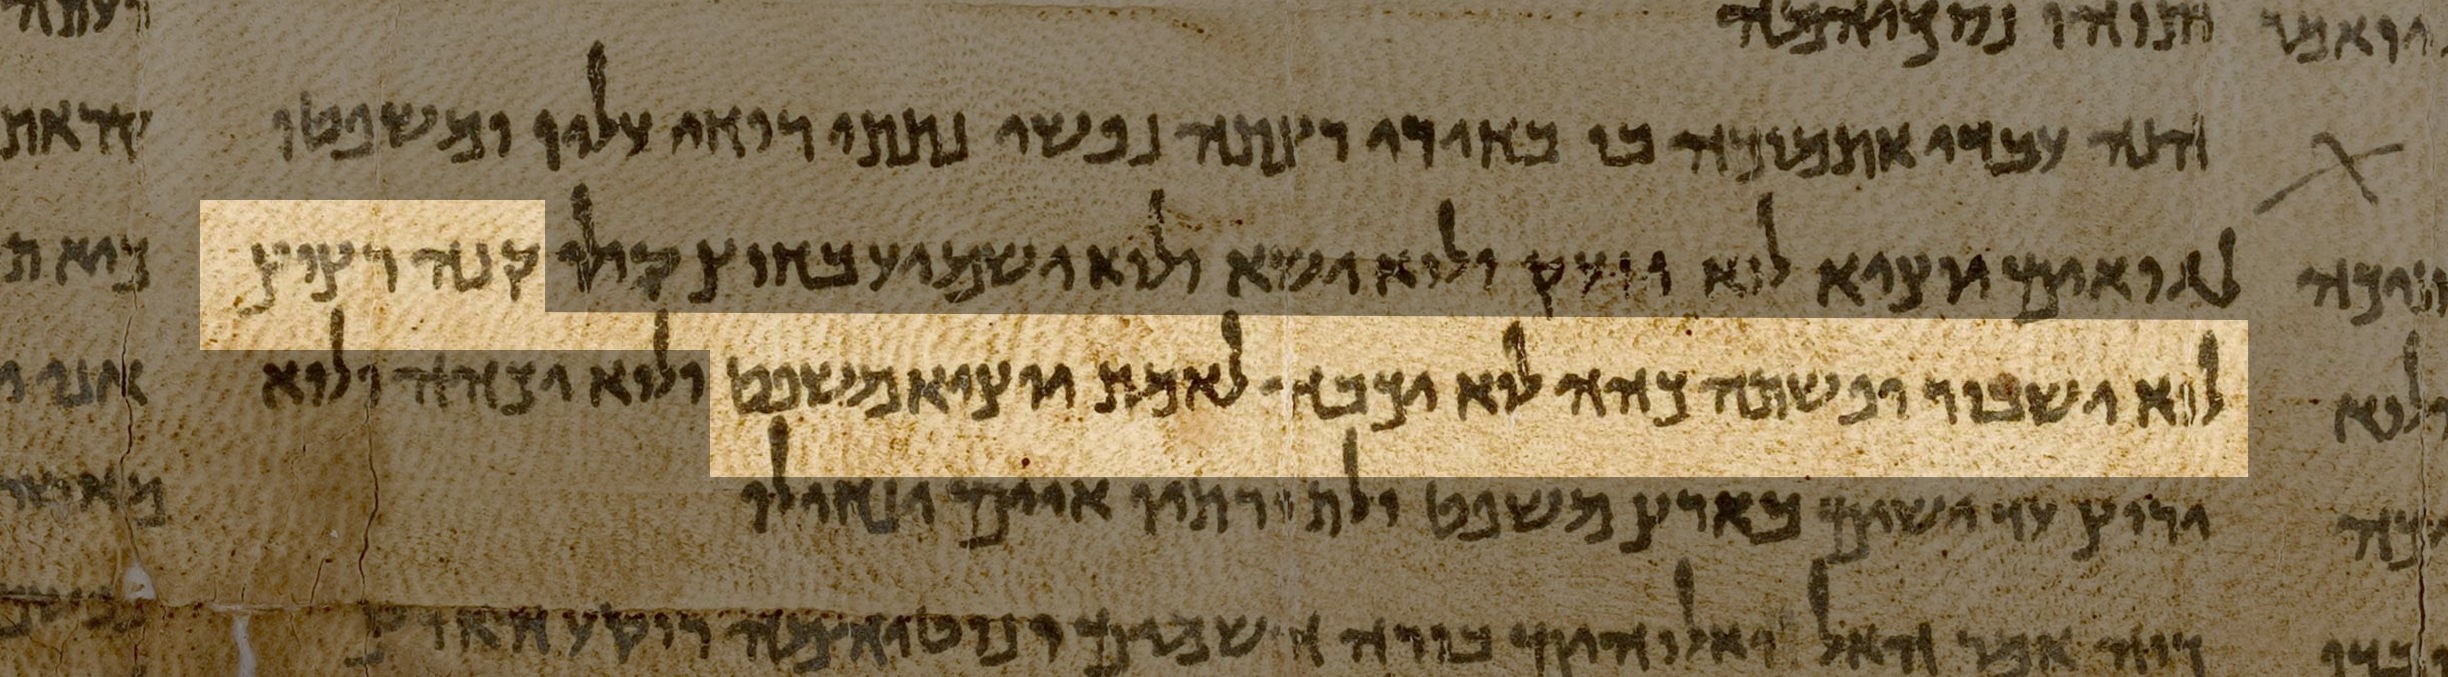 ותוהו נסכיהמה
הנה עבדי אתמוכה בו בחירי רצתה נפשי נתתי רוחי עליו ומשפטו
לגואים יוציא לוא יזעק ולוא ישא ולוא ישמיע בחוץ קולו קנה רצוץ
לוא ישבור ופשתה כהה לוא יכבה לאמת יוציא משפט ולוא יכהה ולוא
ירוץ עד ישים בארץ משפט ולתורתיו איים ינחילו
כוה אמר האל ואלוהים בורה השמים ונוטיהמה רוקע הארץ